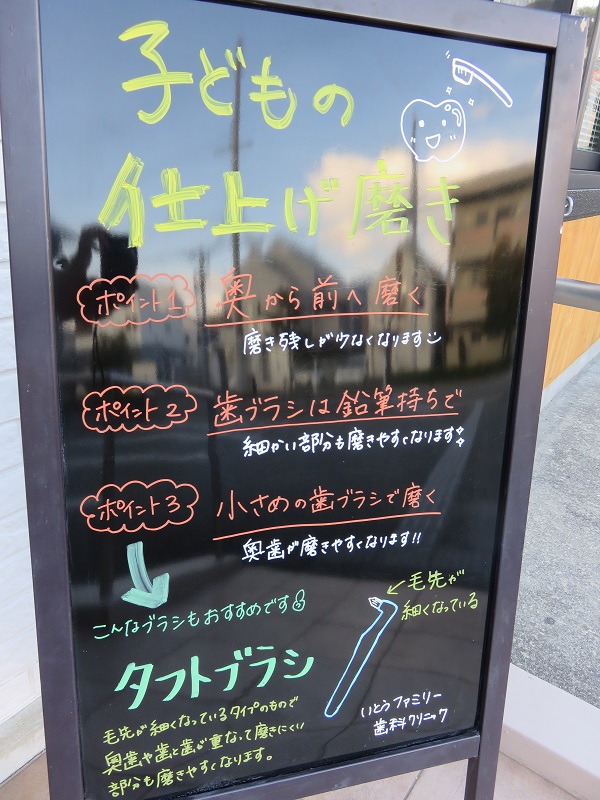 子どもの
仕上げ磨き
ポイント1 奥から前へ磨く
磨き残しが少なくなります
ポイント2 歯ブラシは鉛筆持ちで
細かい部分も磨きやすくなります
ポイント3 小さめの歯ブラシで磨く
奥歯が磨きやすくなります!!
こんなブラシもおすすめです
タフトブラシ
←毛先が
細くなっている
毛先が細くなっているタイプのもので
奥歯や歯と歯が重なって磨きにくい
部分も磨きやすくなります。
いとうファミリー
歯科クリニック